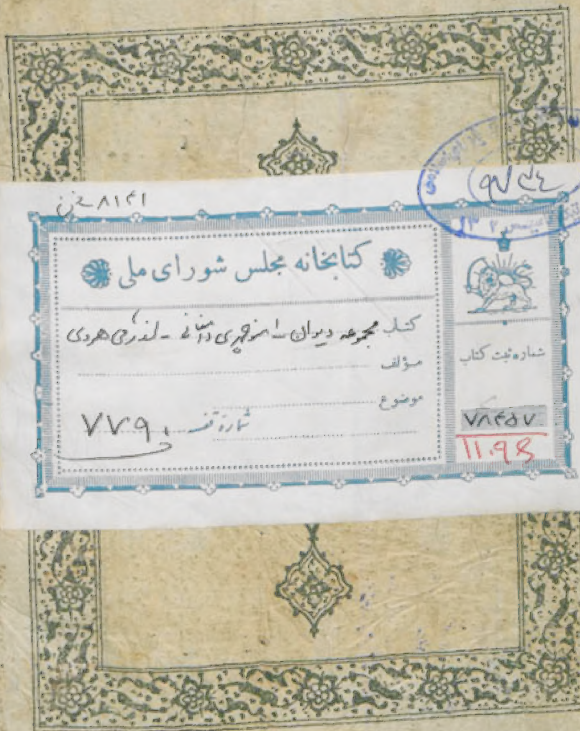 ۸۱۴۱
۹۷۳۴
کتابخانه مجلس شورای ملی
کتاب مجموعه دیوان منوچهری دامغانی - هروی
مؤلف
موضوع
شماره قفسه ۷۷۹۰
شماره ثبت کتاب
۷۸۴۵۷